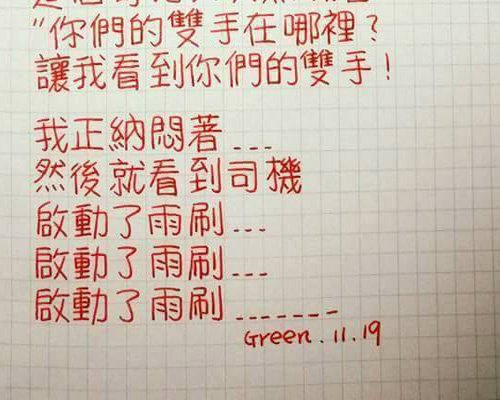 "你們的雙手在哪裡?
讓我看到你們的雙手!
我正納悶著...
然後就看到司機
啟動了雨刷...
啟動了雨刷...
啟動了雨刷.......
Green.11.19